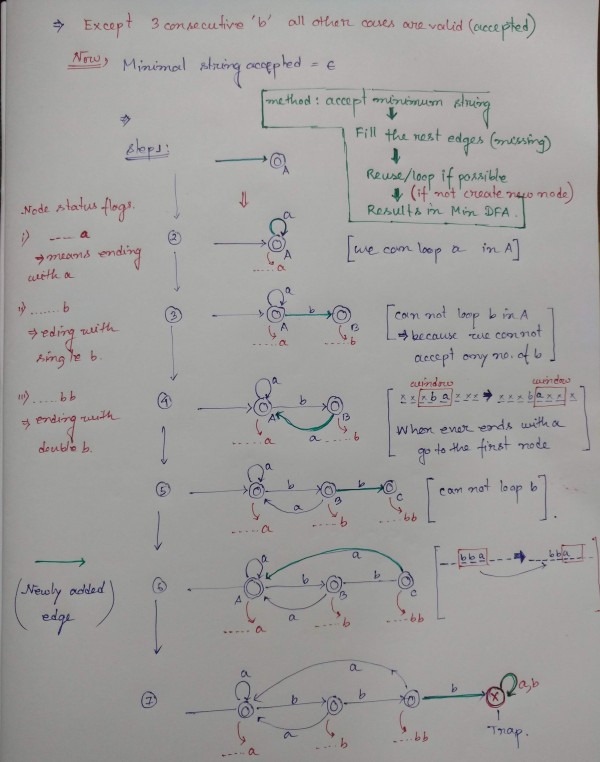 ⇒ Except 3 consecutive 'b' all other cases are valid (accepted)
Now, Minimal string accepted = ϵ
method: accept minimum string
Fill the rest edges (missing)
Reuse/loop if possible
(if not create new node)
Results in Min DFA.
⇒
Steps:
A
Node status flags.
i) ..... a
⇒ means ending
with a
②
a
A
...... a
[we can loop a in A]
ii) ....... b
⇒ eding with
single b.
③
a
b
A
B
..... a
...... b
[can not loop b in A
⇒ because we can not
accept any no. of b]
iii) ...... bb
⇒ ending with
double b.
④
a
b
A
B
a
...... a
...... b
window
window
x x x b a x x x ⇒ x x x b a x x x
When ever ends with a
go to the first node
⑤
a
b
b
A
B
C
a
...... a
...... b
...... bb
[can not loop b]
.
(Newly added
edge)
⑥
a
a
b
b
A
B
C
a
...... a
...... b
...... bb
b b a ⇒ b b a
⑦
a
a
b
b
b
a, b
X
a
Trap.
...... a
...... b
...... bb